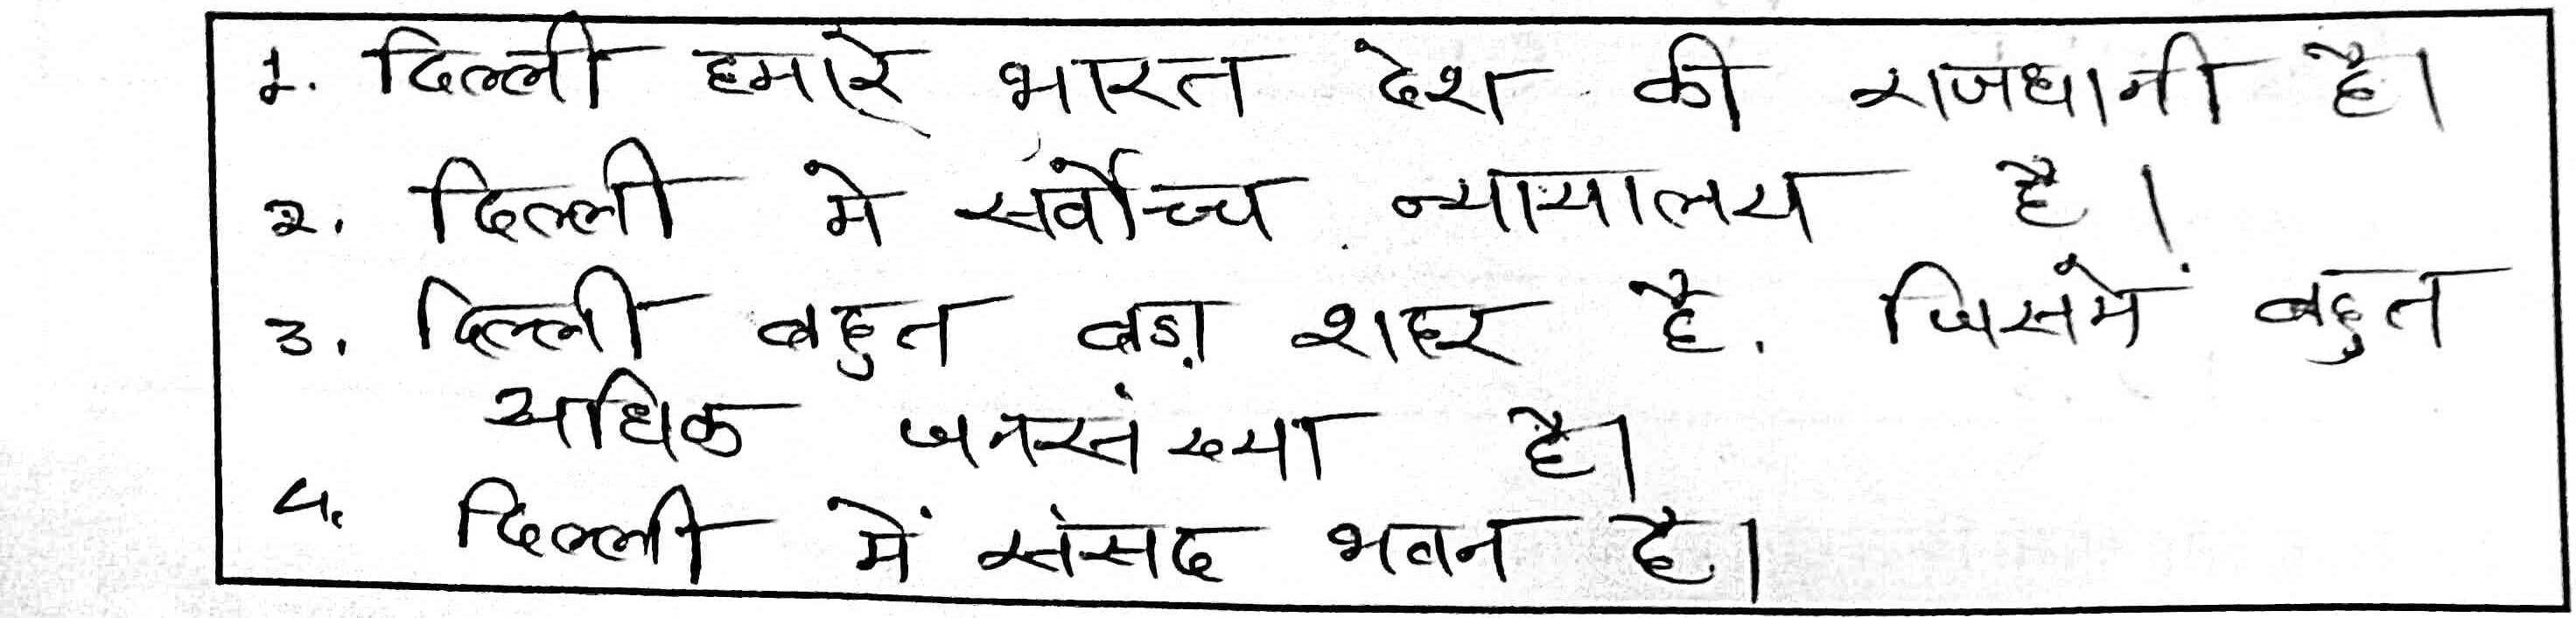 1. दिल्ली हमारे भारत देश की राजधानी है।
२. दिल्ली मे सर्वोच्च न्यायालय है।
3. दिल्ली बहुत बड़ा शहर है. जिसमें बहुत
अधिक जनसंख्या है।
4. दिल्ली में संसद भवन है।